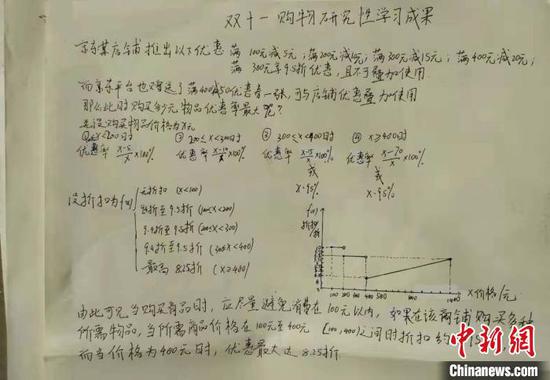 双十一购物研究性学习成果
京东某店铺推出以下优惠 满100元减5元；满200元减10元；满300元减15元；满400元减20元；
满300元享9.5折优惠，且不可叠加使用
而京东平台也赠送了满400减50优惠券一张，可与店铺优惠叠加使用
那么此时购买多少元物品优惠率最大呢？
设购买物品价格为x元
200时 ② 200≤x<300时 ③ 300≤x<400时 ④ x≥400时
优惠率 ×100% 优惠率 ×100% 优惠率 ×100% 优惠率 x-70/x ×100%
或 或
x·95% x·95%
设折扣为f(x)
无折扣 (x<100)
9.5折 (100≤x<200)
至9.5折 (200≤x<300)
至9.5折 (300≤x<400)
最高 8.25折 (x≥400)
f(x)
折扣/折
x价格/元
由此可见当购买商品时，应尽量避免消费在100元以内，如果在该店铺购买多种
所需物品，当所需商品价格在100元至400元 [100,400)之间时折扣约
而当价格为400元时，优惠最大达8.25折
中新网
Chinanews.com